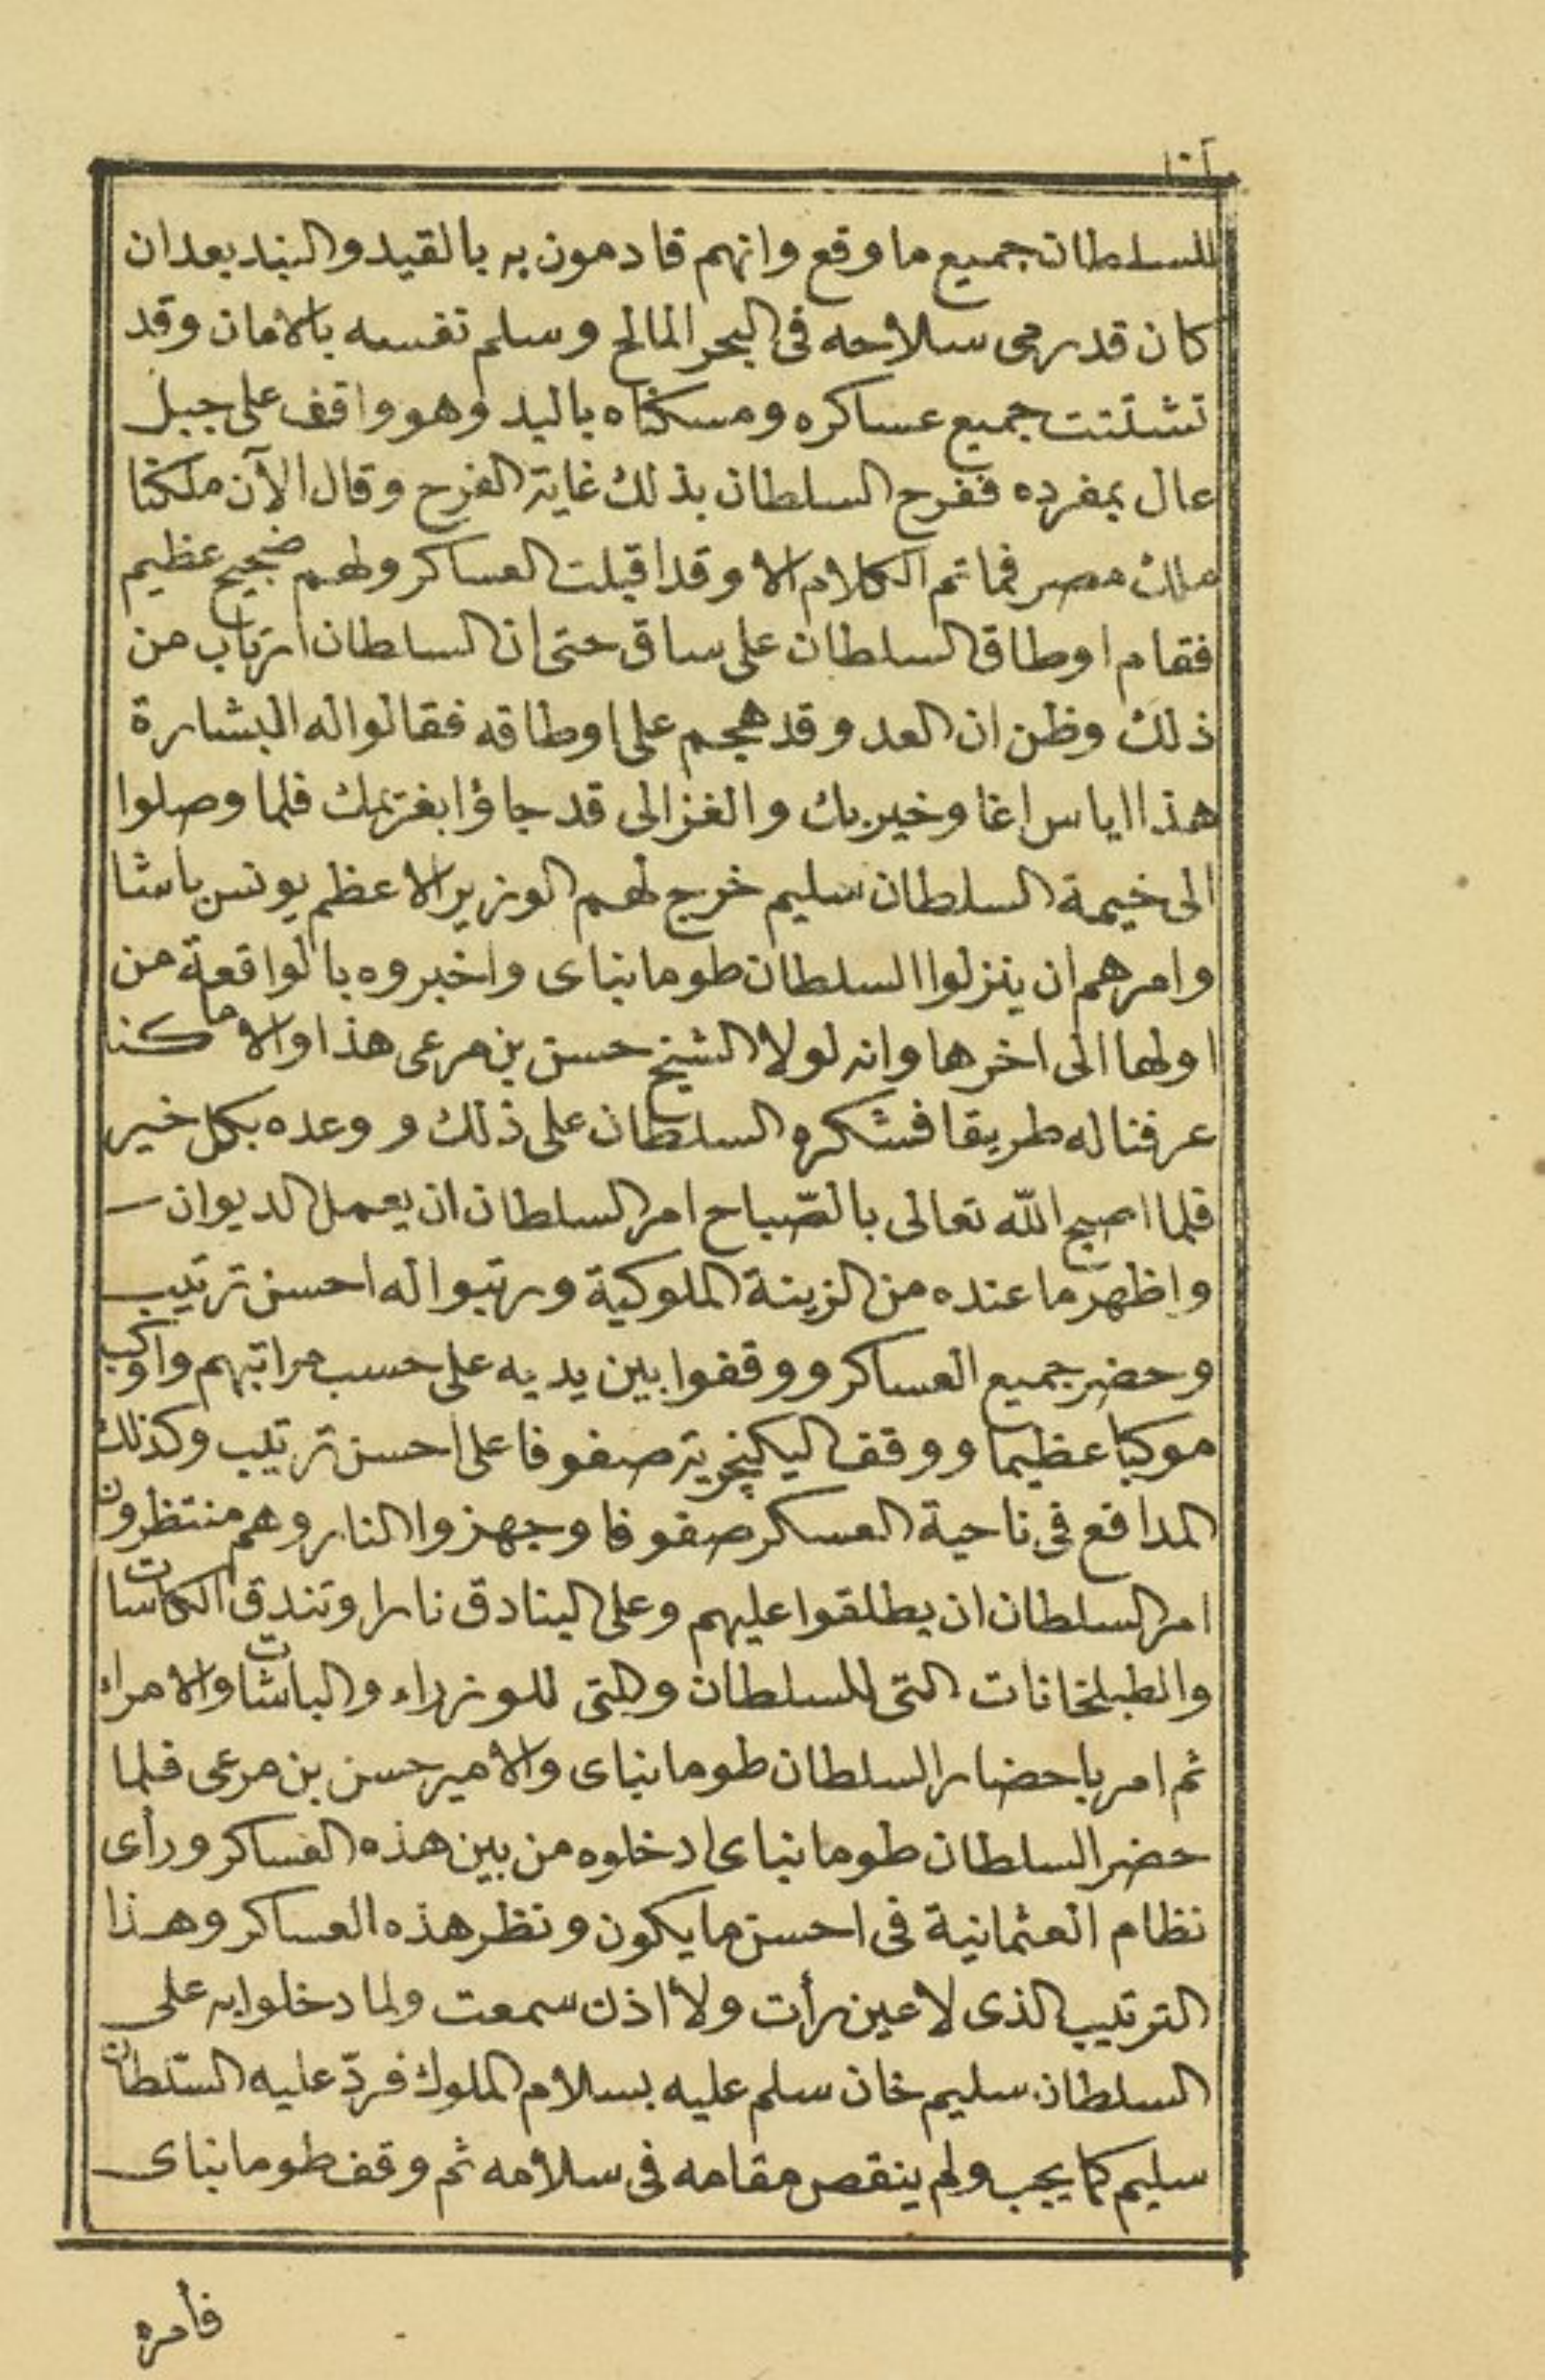 للسلطان جميع ما وقع وانهم قادمون به بالقيد والبند بعد ان
كان قد رمى سلاحه فى البحر المالح وسلم نفسه بالامان وقد
تشتتت جميع عساكره ومسكناه باليد وهو واقف على جبل
عال بمفرده ففرح السلطان بذلك غاية الفرح وقال الآن ملكنا
ملك مصر فما تم الكلام الا وقد اقبلت العساكر ولهم ضجيج عظيم
فقام اوطاق السلطان على ساق حتى ان السلطان ارتاب من
ذلك وظن ان العدو قد هجم على اوطاقه فقالوا له البشارة
هذا اياس اغا وخير بك والغزالى قد جاؤا بغريمك فلما وصلوا
الى خيمة السلطان سليم خرج لهم الوزير الاعظم يونس باشا
وامرهم ان ينزلوا السلطان طومانباى واخبروه بالواقعة من
اولها الى اخرها وانه لولا الشيخ حسن بن مرعى هذا والا ما كنا
عرفنا له طريقا فشكره السلطان على ذلك ووعده بكل خير
فلما اصبح الله تعالى بالصّباح امر السلطان ان يعمل الديوان
واظهر ما عنده من الزينة الملوكية ورتبوا له احسن ترتيب
وحضر جميع العساكر ووقفوا بين يديه على حسب مراتبهم واوكب
موكبا عظيما ووقف اليكنجرية صفوفا على احسن ترتيب وكذلك
المدافع فى ناحية العسكر صفوفا وجهزوا النار وهم منتظرون
امر السلطان ان يطلقوا عليهم وعلى البنادق نارا وتندق الكاسات
والطبلخانات التى للسلطان والتى للوزراء والباشات والامراء
ثم امر باحضار السلطان طومانباى والامير حسن بن مرعى فلما
حضر السلطان طومانباى ادخلوه من بين هذه العساكر ورأى
نظام العثمانية فى احسن ما يكون ونظر هذه العساكر وهذا
الترتيب الذى لا عين رأت ولا اذن سمعت ولما دخلوا به على
السلطان سليم خان سلم عليه بسلام الملوك فردّ عليه السّلطان
سليم كما يجب ولم ينقص مقامه فى سلامه ثم وقف طومانباى
فأمره